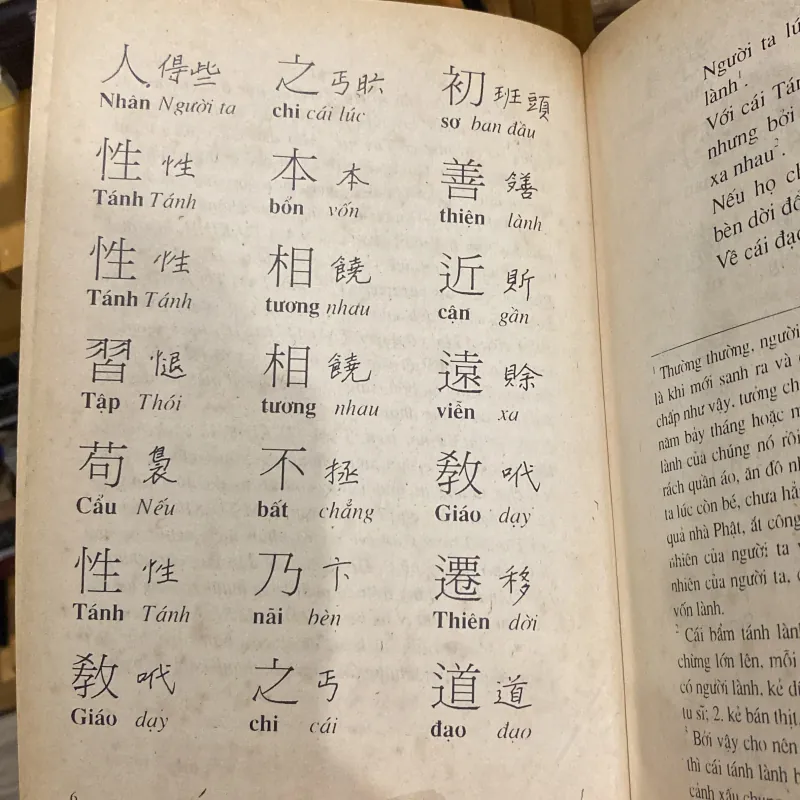 人 𠊚些 之 丐𣅶 初 班頭
Nhân Người ta chi cái lúc sơ ban đầu
性 性 本 本 善
Tánh Tánh bổn vốn thiện lành
性 性 相 饒 近 𧵆
Tánh Tánh tương nhau cận gần
習 相 饒 遠 賒
Tập Thói tương nhau viễn xa
苟 裊 不 拯 教 𠰺
Cẩu Nếu bất chẳng Giáo dạy
性 性 乃 卞 遷 移
Tánh Tánh nãi bèn Thiên dời
教 𠰺 之 丐 道 道
Giáo dạy chi cái đạo đạo
6
Người ta
lành¹.
Với cái
nhưng bởi
xa nhau².
Nếu họ
bèn dời
Về cái
¹ Thường thường, người
là khi mới sanh ra và
chấp như vậy, tưởng
năm bảy tháng hoặc
lành của chúng nó rồi
rách quần áo, ăn đồ
ta lúc còn bé, chưa
quả nhà Phật, ắt công
nhiên của người ta
nhiên của người ta,
vốn lành.
² Cái bẩm tánh lành
chừng lớn lên, mỗi
có người lành, kẻ
tu sĩ; 2. kẻ bán thịt,
³ Bởi vậy cho nên
thì cái tánh lành
cảnh xấu